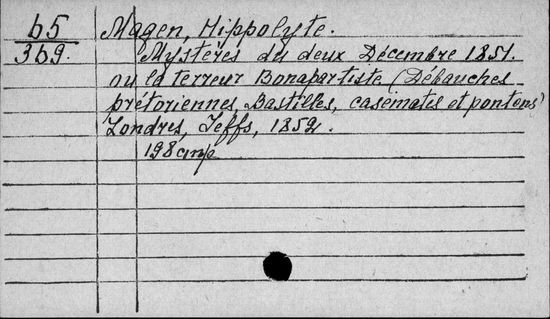 65
369.
Magen, Hippolyte.
Mystères du deux Décembre 1851.
ou la terreur Bonapartiste (Débauches
prétoriennes, Bastilles, casemates et pontons)
Londres, Jeffs, 1852.
198